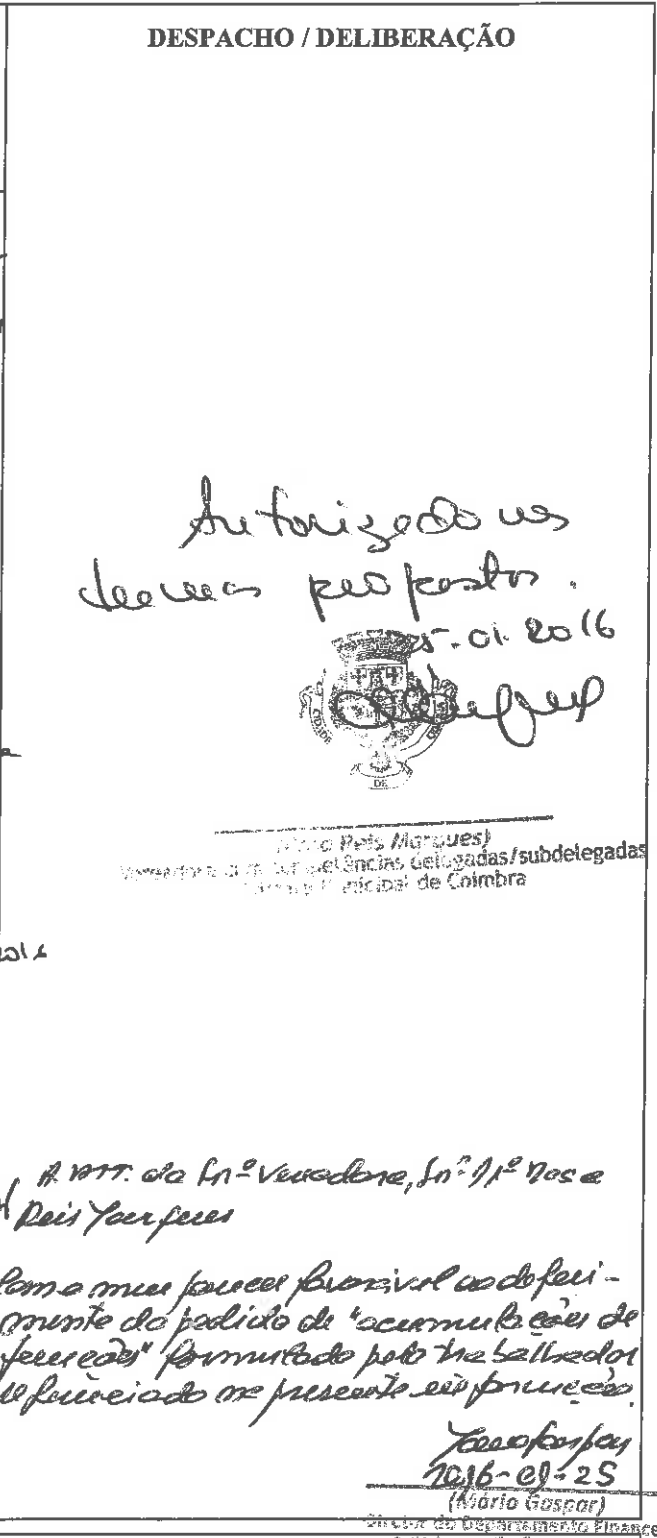 DESPACHO / DELIBERAÇÃO
Autorizado nos
termos propostos.
5.01.2016
CIDADE
DE
Reis Marques)
competências delegadas/subdelegadas
Câmara Municipal de Coimbra
2016
A att. da Srª Vereadora, Srª Mª Rosa
Reis Marques
Com o meu parecer favorável ao deferi-
mento do pedido de "acumulações de
funções" formulado pelo trabalhador
referenciado na presente informação.
2016-01-25
(Mário Gaspar)
Director do Departamento Finance